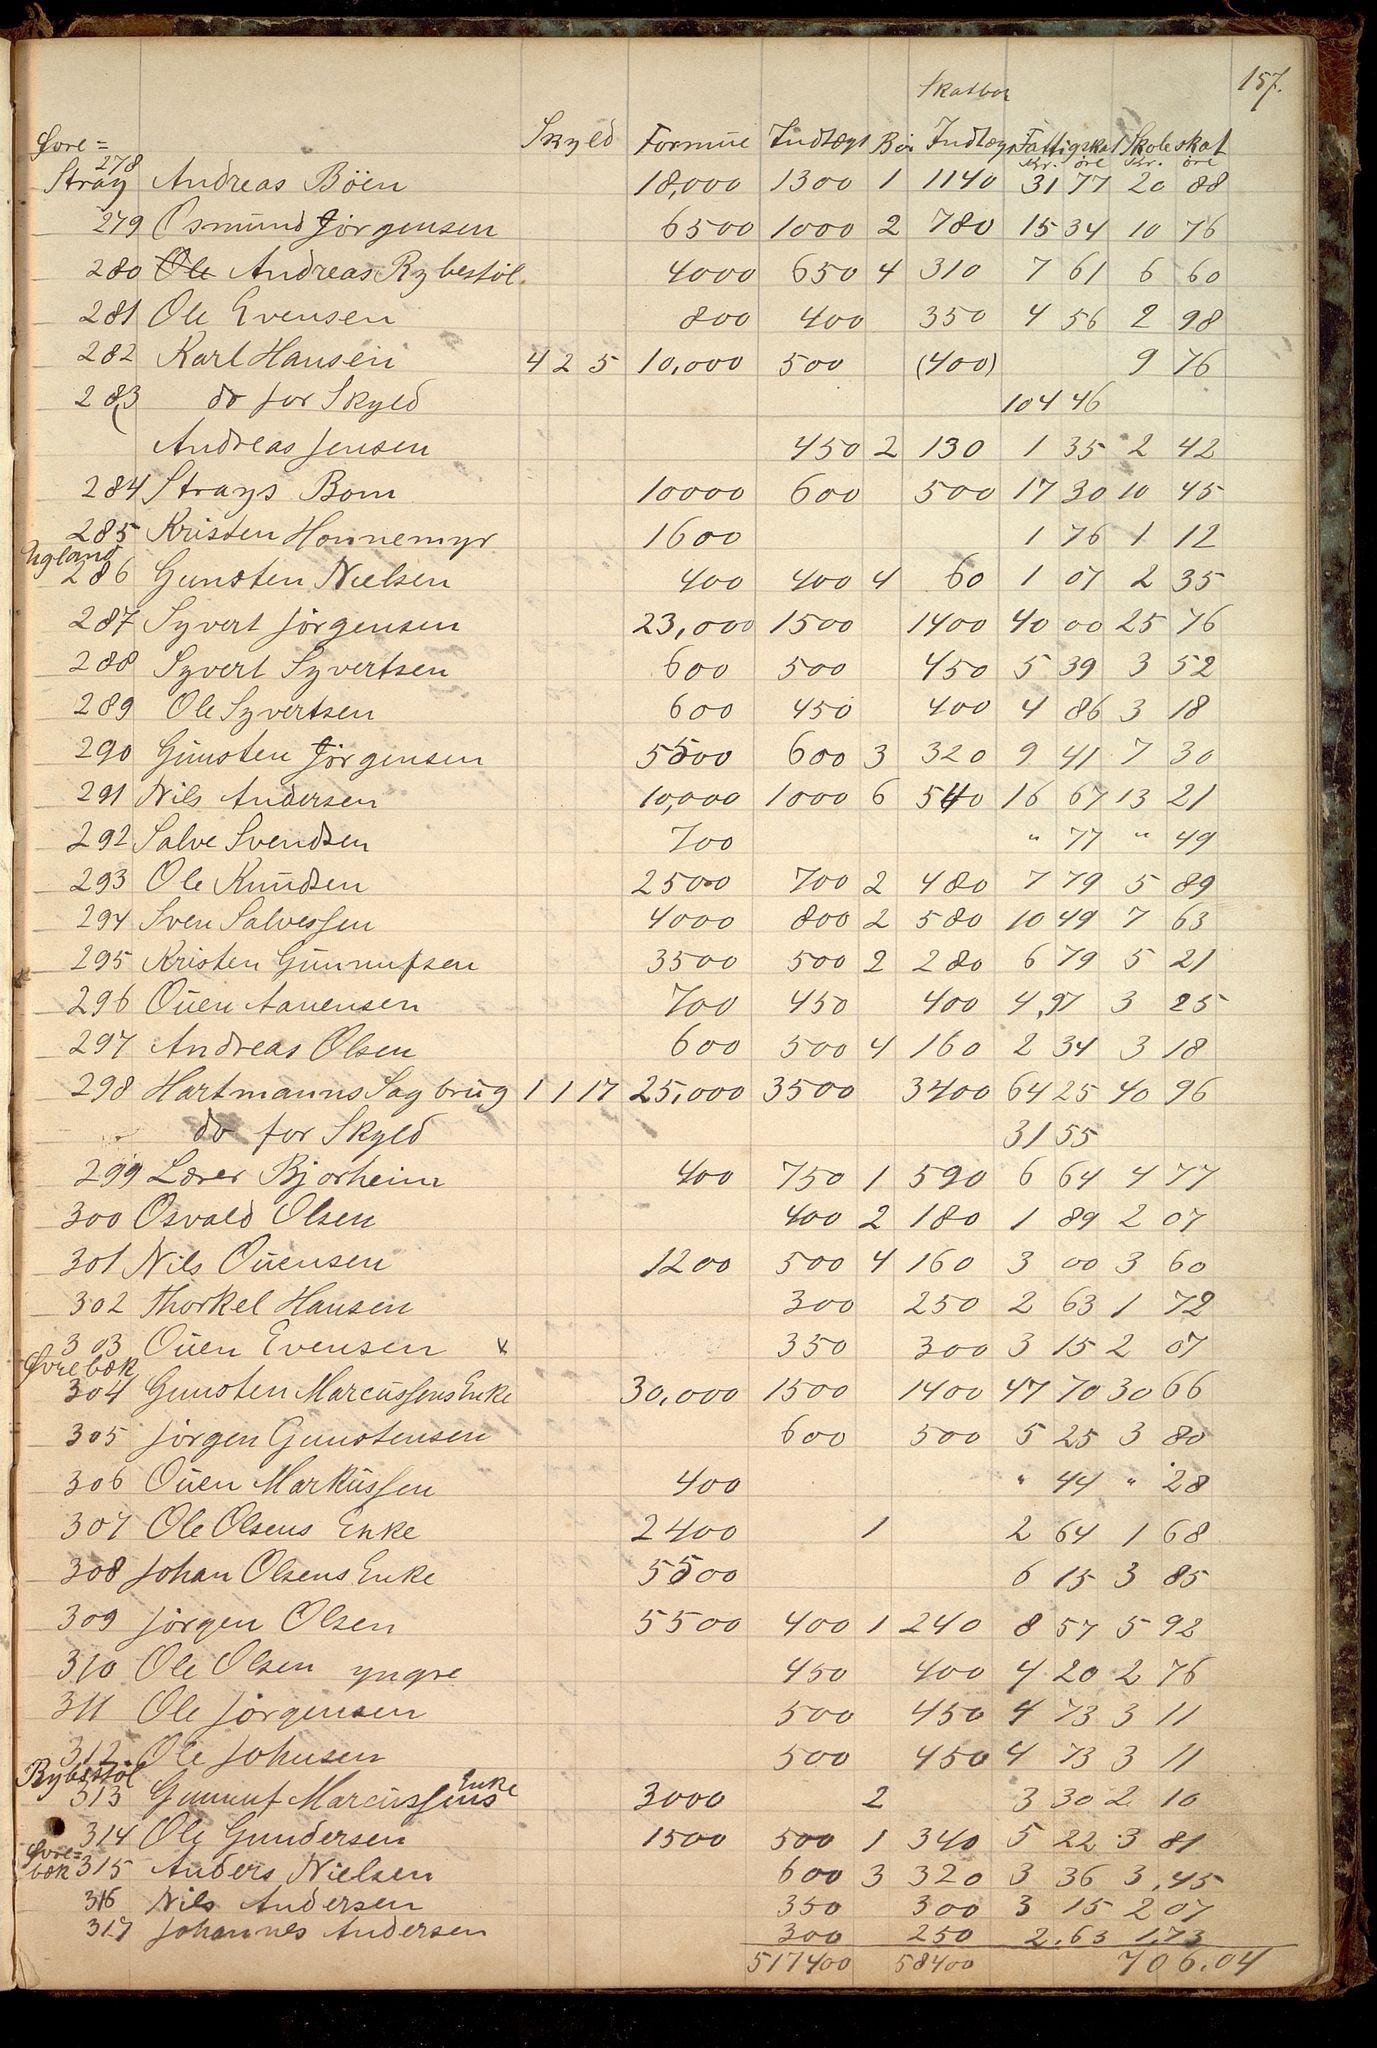 157.
Skatbar
Skyld Formue Indtægt Bör Indtægt Fattigskat Skoleskat
Kr. öre Kr. öre
Øvre=
Stray 278 Andreas Böen 18,000 1300 1 1140 31 77 20 88
279 Osmund Jörgensen 6500 1000 2 780 15 34 10 76
280 Ole Andreas Rybestöl 4000 650 4 310 7 61 6 60
281 Ole Evensen 800 400 350 4 56 2 98
282 Karl Hansen 4 2 5 10,000 500 (400) 9 76
283 do for Skyld 104 46
Andreas Jensen 450 2 130 1 35 2 42
284 Strays Bom 10000 600 500 17 30 10 45
285 Kristen Honnemyr 1600 1 76 1 12
Ugland
286 Gunsten Nielsen 400 400 4 60 1 07 2 35
287 Syvert Jörgensen 23,000 1500 1400 40 00 25 76
288 Syvert Syvertsen 600 500 450 5 39 3 52
289 Ole Syvertsen 600 450 400 4 86 3 18
290 Gunsten Jörgensen 5500 600 3 320 9 41 7 30
291 Nils Andersen 10,000 1000 6 540 16 67 13 21
292 Salve Svendsen 700 " 77 " 49
293 Ole Knudsen 2500 700 2 480 7 79 5 89
294 Sven Salvessen 4000 800 2 580 10 49 7 63
295 Kristen Gunnufsen 3500 500 2 280 6 79 5 21
296 Ouen Aanensen 700 450 400 4,97 3 25
297 Andreas Olsen 600 500 4 160 2 34 3 18
298 Hartmanns Sagbrug 1 1 17 25,000 3500 3400 64 25 40 96
do for Skyld 31 55
299 Lærer Bjorheim 400 750 1 590 6 64 4 77
300 Osvald Olsen 400 2 180 1 89 2 07
301 Nils Ouensen 1200 500 4 160 3 00 3 60
302 Thorkel Hansen 300 250 2 63 1 72
303 Ouen Evensen x 350 300 3 15 2 07
Øvrebøk
304 Gunsten Marcussens Enke 30,000 1500 1400 47 70 30 66
305 Jörgen Gunstensen 600 500 5 25 3 80
306 Ouen Markussen 400 " 44 " 28
307 Ole Olsens Enke 2400 1 2 64 1 68
308 Johan Olsens Enke 5500 6 15 3 85
309 Jörgen Olsen 5500 400 1 240 8 57 5 92
310 Ole Olsen yngre 450 400 4 20 2 76
311 Ole Jörgensen 500 450 4 73 3 11
312 Ole Johnsen 500 450 4 73 3 11
Rybestöl
313 Gunnuf Marcussens Enke 3000 2 3 30 2 10
314 Ole Gundersen 1500 500 1 340 5 22 3 81
Øvre=
bøk 315 Anders Nielsen 600 3 320 3 36 3,45
316 Nils Andersen 350 300 3 15 2 07
317 Johannes Andersen 300 250 2.63 1.73
517400 58400 706.04